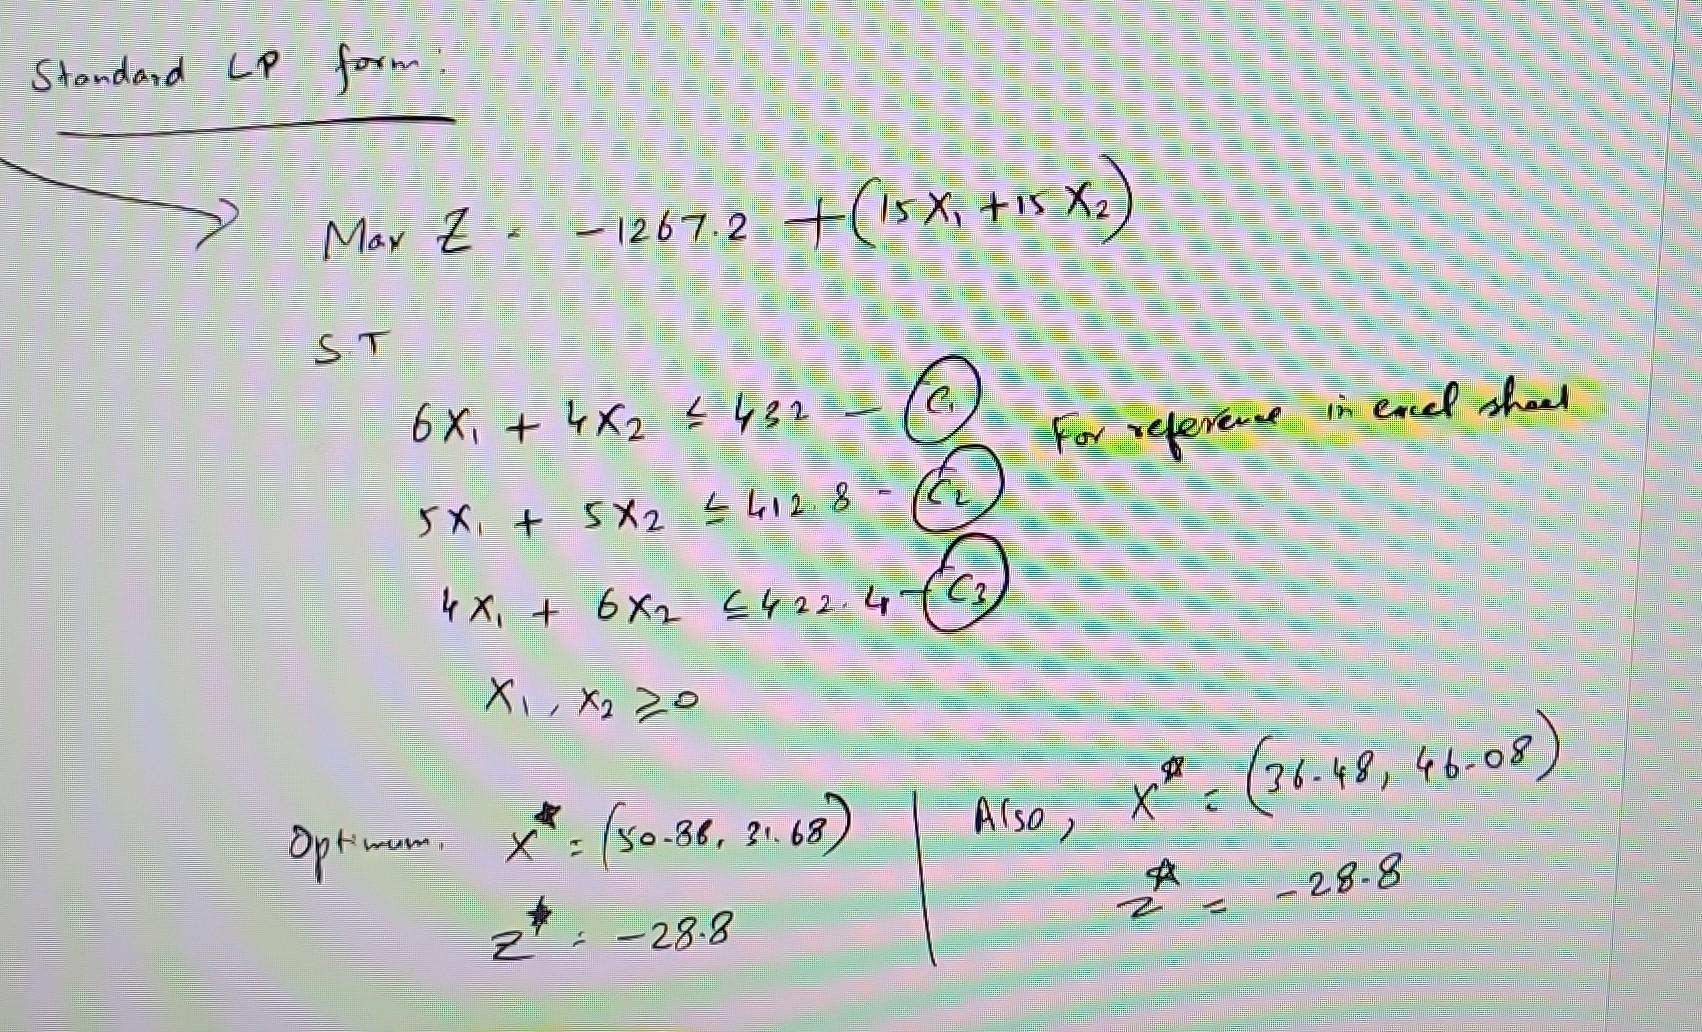 Standard LP form:
Max Z = -1267.2 + (15X₁ + 15X₂)
S.T
6X₁ + 4X₂ ≤ 432 - C₁
For reference in excel sheet
5X₁ + 5X₂ ≤ 412.8 - C₂
4X₁ + 6X₂ ≤ 422.4 - C₃
X₁, X₂ ≥ 0
Optimum. X* = (50.88, 31.68)
Z* = -28.8
Also, X* = (36.48, 46.08)
Z* = -28.8